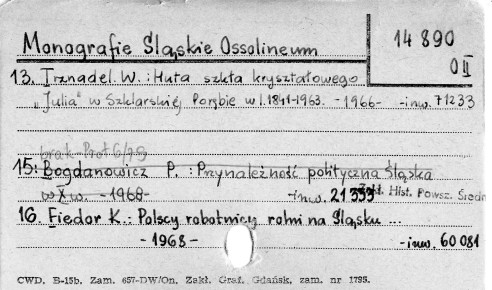 Monografie Śląskie Ossolineum
14 890
O II
13. Trznadel. W. : Huta szkła kryształowego
„Julia" w Szklarskiej Porębie w l. 1841-1963. - 1966 - -inw. 71233
brak - Prot 6/75
15: Bogdanowicz P. : Przynależność polityczna Śląska
w X w. - 1968 - -inw. 21 333 Zakł. Hist. Powsz. Średn
16. Fiedor K. : Polscy robotnicy rolni na Śląsku ...
- 1968 - -inw. 60 081
CWD. B-15b. Zam. 657-DW/On. Zakł. Graf. Gdańsk, zam. nr 1795.